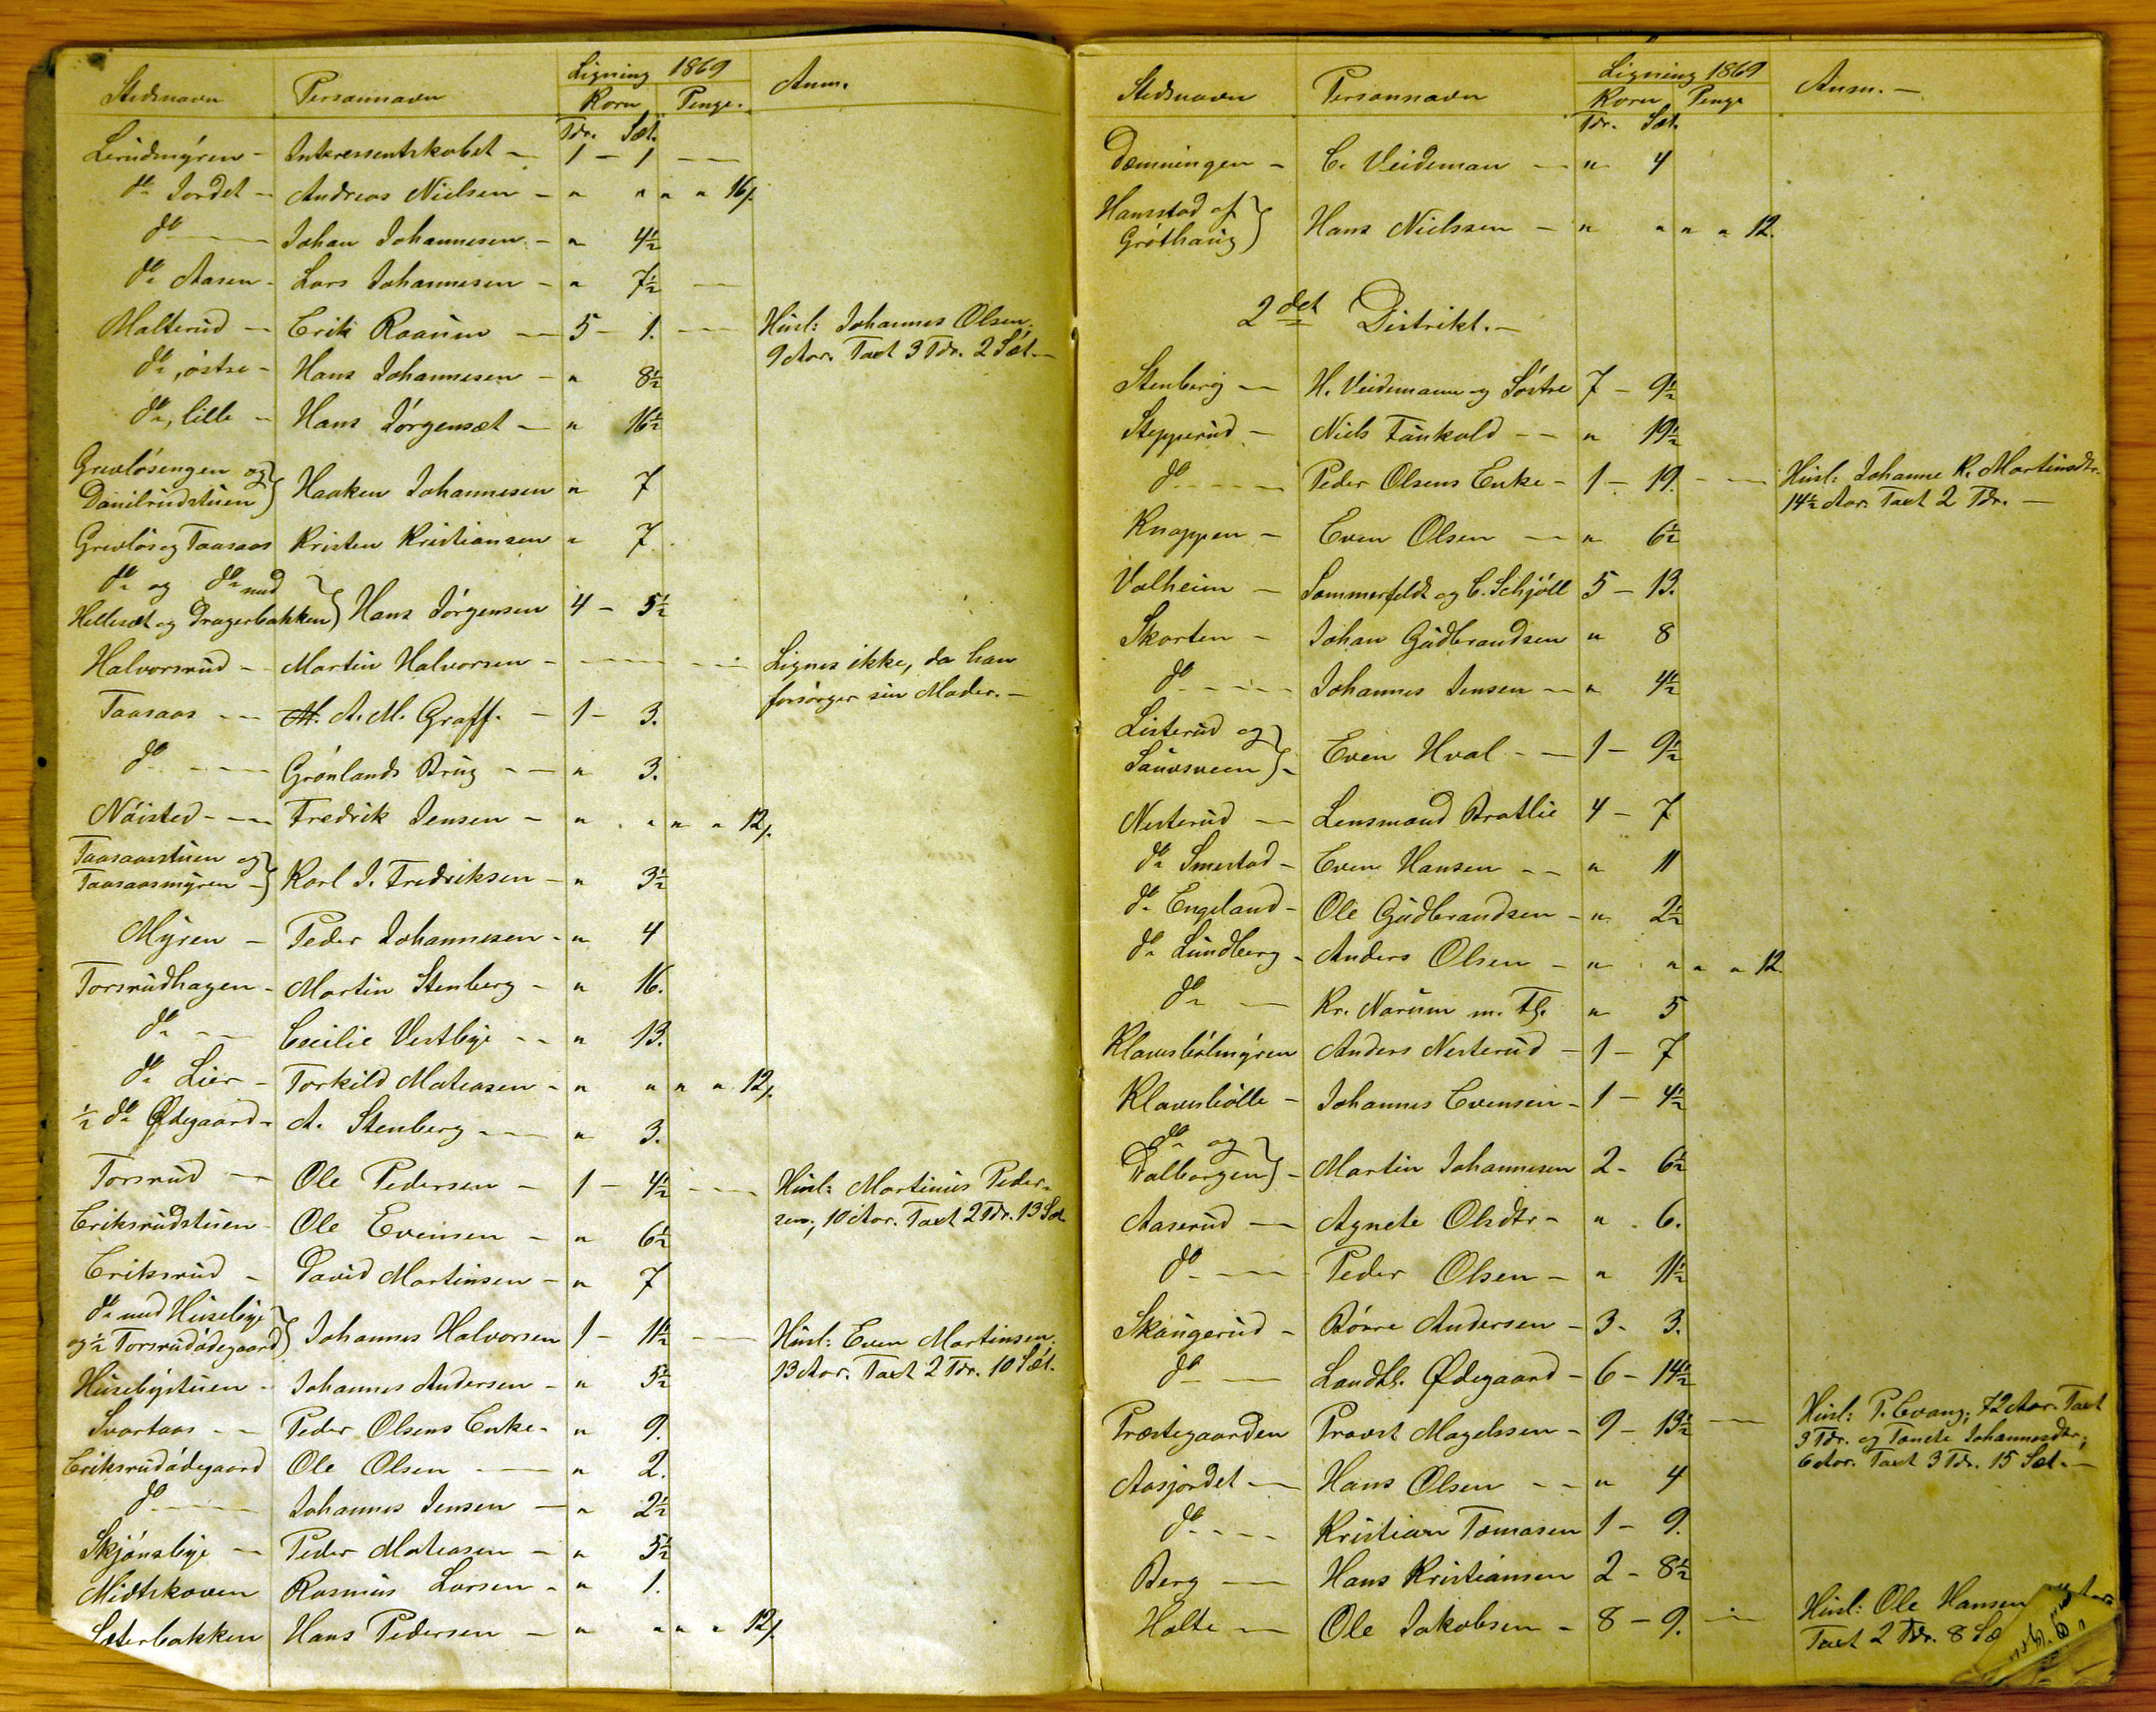 Stedsnavn Personnavn Ligning 1869 Anm.
Korn Penge.
Tdr. Sæt.
Lerudmÿren - Interessentskabet - 1 - 1 - -
do Jordet - Andreas Nielsen - " " " " 16/.
do - Johan Johannesen - " 4½
do Aasen - Lars Johannesen - " 7½ -
Malterud - Erik Raaum - 5 - 1. - Husl: Johannes Olsen.
9 Aar. Taxt 3 Tdr. 2 Sæt. -
do, østre - Hans Johannesen - " 8½
do, lille - Hans Jörgensæt - " 16½
Grevlösengen og
Danilrudstuen } Haaken Johannesen " 7
Grevlös og Taasaas Kristen Kristiansen " 7.
do og do med
Hellesæt og Dragerbakken } Hans Jörgensen 4 - 5½
Halvorsrud - Martin Halvorsen - - - Lignes ikke, da han
forsörger sin Moder. -
Taasaas - A. M. Graff. - 1 - 3.
do - Grönlands Brug - " 3.
Nöisted - Fredrik Jensen - " " " " 12/.
Taasaasstuen og
Taasaasmÿren } Karl J. Fredriksen - " 3½
Mÿren - Peder Johannesen - " 4
Torsrudhagen - Martin Stenberg - " 16.
do - Cecilie Vestbye - " 13.
do Lier - Torkild Mateasen - " " " " 12/.
½ do Ødegaard - A. Stenberg - " 3.
Torsrud - Ole Pedersen - 1 - 4½ - Husl: Martinus Peder-
sen, 10 Aar. Taxt 2 Tdr. 13 Sæt
Eriksrudstuen - Ole Evensen - " 6½
Eriksrud - David Martinsen - " 7
do med Husebye
og ½ Torsrudödegaard } Johannes Halvorsen 1 - 11½ - Husl: Even Martinsen.
13 Aar. Taxt 2 Tdr. 10 Sæt.
Husebystuen - Johannes Andersen - " 5½
Svartaas - Peder Olsens Enke - " 9.
Eriksrudödegaard Ole Olsen - " 2.
do - Johannes Jensen - " 2½
Skjönsbye - Peder Mateasen - " 5½
Midtskoven Rasmus Larsen - " 1.
Sæterbakken Hans Pedersen - " " " " 12/.
Stedsnavn Personnavn Ligning 1869 Anm. -
Korn Penge
Tdr. Sæt.
Dæmningen - C. Veideman - " 4
Hansstad af
Gröthaug } Hans Nielssen - " " " " 12.
2det Distrikt. -
Stenberg - H. Veidemann og Söstre 7 - 9½
Stepperud - Niels Fankald - " 19½
do - Peder Olsens Enke - 1 - 19. - Husl: Johanne K. Martinsdtr.
14½ Aar. Taxt 2 Tdr. -
Knappen - Even Olsen - " 6½
Valheim - Sommerfeldt og C. Schjöll 5 - 13.
Skarten - Johan Gudbrandsen " 8
do - Johannes Jensen - " 4½
Listerud og
Sauvsveen } - Even Hval - 1 - 9½
Nesterud - Lensmand Bratlie 4 - 7
do Smestad - Even Hansen - " 11
do Engeland - Ole Gudbrandsen - " 2½
do Lundberg - Anders Olsen - " " " " 12.
do - Kr. Narum m. Fl. " 5
Klavesbölmÿren Anders Nesterud - 1 - 7
Klavesbölle - Johannes Evensen - 1 - 4½
do og
Dalborgen } - Martin Johannesen 2 - 6½
Aaserud - Agnete Olsdtr - " 6.
do - Peder Olsen - " 11½
Skaugerud - Börre Andersen - 3 - 3.
do - Landhl. Ødegaard - 6 - 14½
Præstegaarden Provst Magelssen - 9 - 13½ - Husl: P. Evang; 72 Aar. Taxt
3 Tdr. og Tanete Johannesdtr;
6 Aar. Taxt 3 Tdr. 15 Sæt. -
Aasjordet - Hans Olsen - " 4
do - Kristian Tomasen 1 - 9.
Berg - Hans Kristiansen 2 - 8½
Holte - Ole Jakobsen - 8 - 9. - Husl: Ole Hansen
Taxt 2 Tdr. 8 Sæ